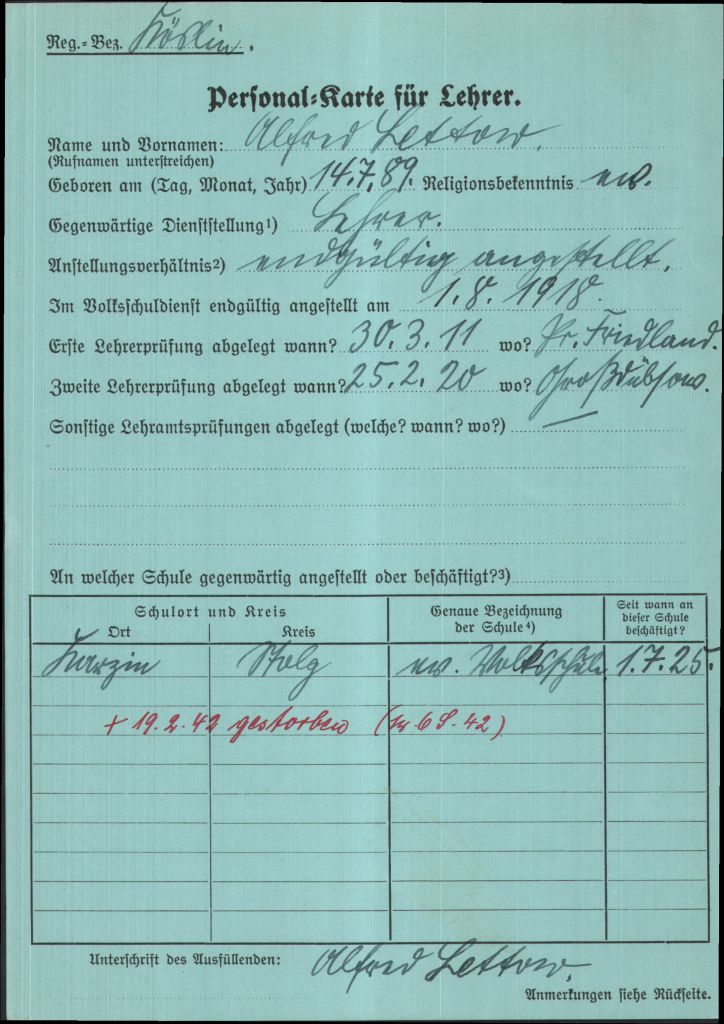 Reg.-Bez. Köslin.
Personal-Karte für Lehrer.
Name und Vornamen: Alfred Lettow.
(Rufnamen unterstreichen)
Geboren am (Tag, Monat, Jahr) 14.7.89. Religionsbekenntnis ev.
Gegenwärtige Dienststellung1) Lehrer.
Anstellungsverhältnis2) endgültig angestellt.
Im Volksschuldienst endgültig angestellt am 1.8.1918.
Erste Lehrerprüfung abgelegt wann? 30.3.11 wo? Pr. Friedland.
Zweite Lehrerprüfung abgelegt wann? 25.2.20 wo? Großdübsow.
Sonstige Lehramtsprüfungen abgelegt (welche? wann? wo?) —
An welcher Schule gegenwärtig angestellt oder beschäftigt?3)
Schulort und Kreis Genaue Bezeichnung der Schule4) Seit wann an dieser Schule beschäftigt?
Ort Kreis
Karzin Stolp ev. Volksschule 1.7.25.
+ 19.2.42 gestorben 42)
Unterschrift des Ausfüllenden: Alfred Lettow.
Anmerkungen siehe Rückseite.